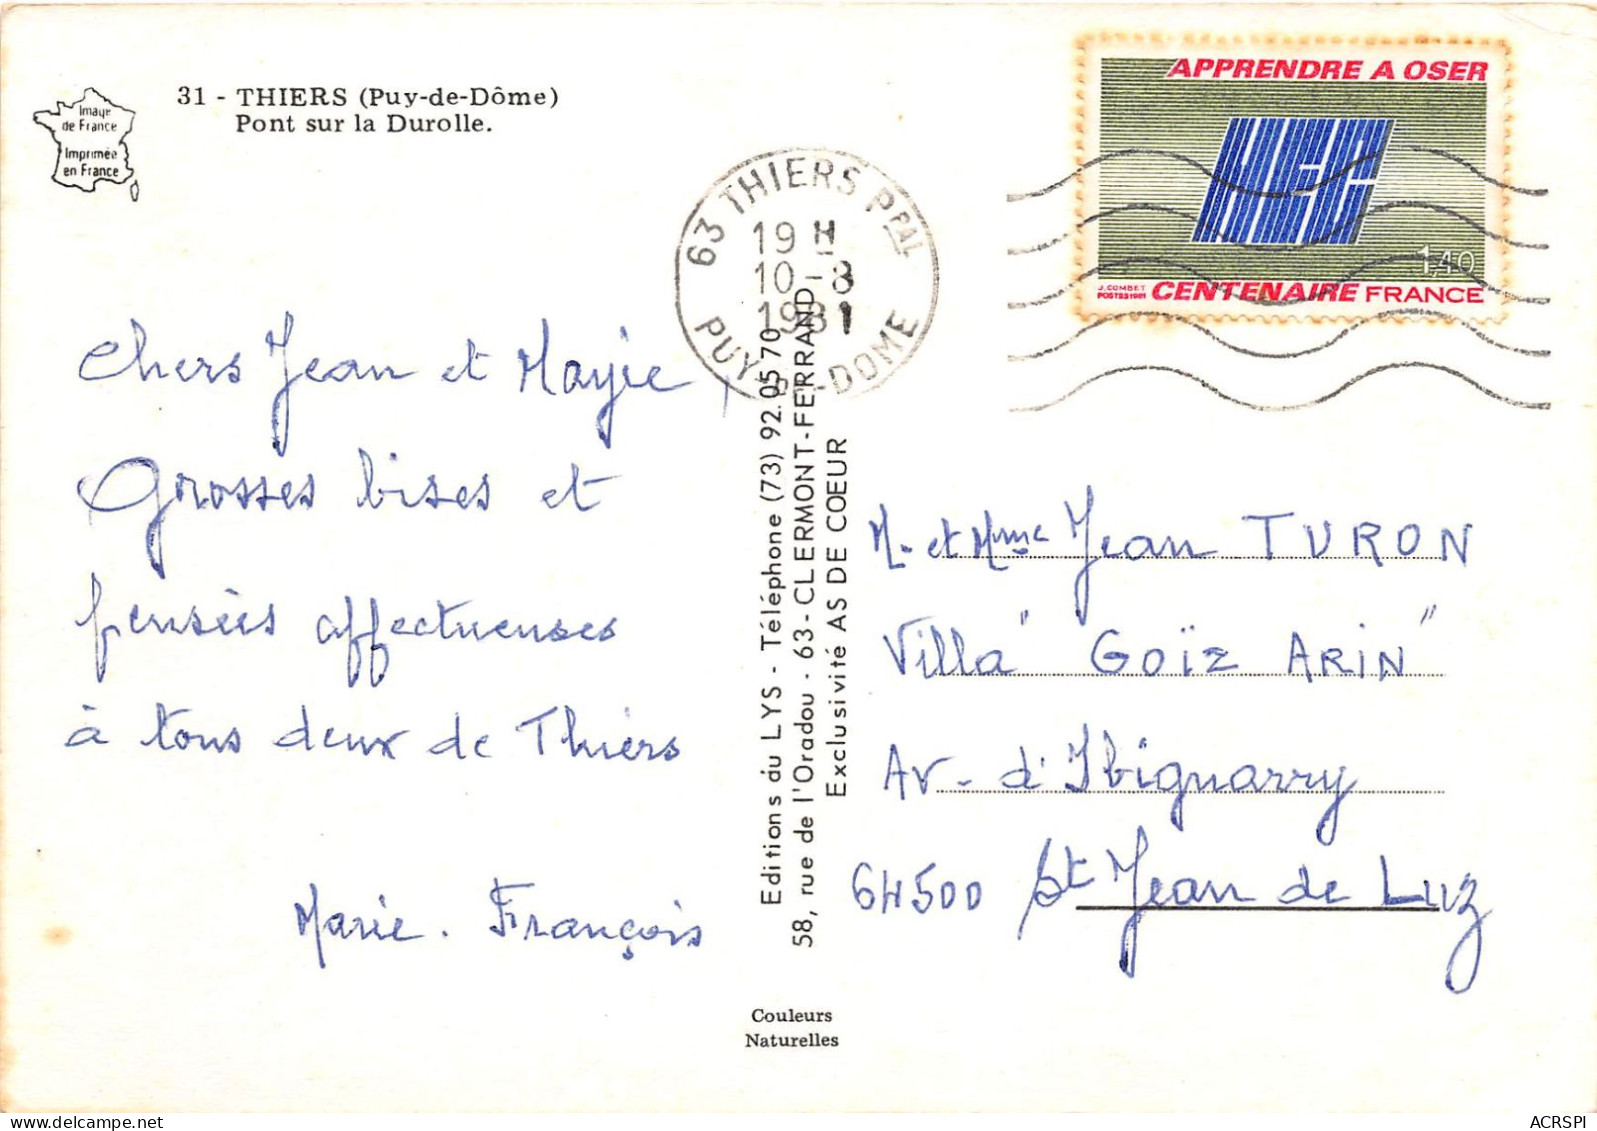 31 - THIERS (Puy-de-Dôme)
Pont sur la Durolle.
Image
de France
Imprimée
en France
63 THIERS PPAL
19 H
10-8
1981
PUY-DE-DOME
APPRENDRE A OSER
HEC
1,40
J.COMBET
POSTES 1981
CENTENAIRE FRANCE
Chers Jean et Mayie,
Grosses bises et
pensées affectueuses
à tous deux de Thiers
Marie. François
Editions du LYS - Téléphone (73) 92.05.70
58, rue de l'Oradou - 63 - CLERMONT-FERRAND
Exclusivité AS DE COEUR
M. et Mme Jean TURON
Villa "GOÏZ ARIN"
Av. d'Ibignarry
64500 St Jean de Luz
Couleurs
Naturelles
ACRSPI